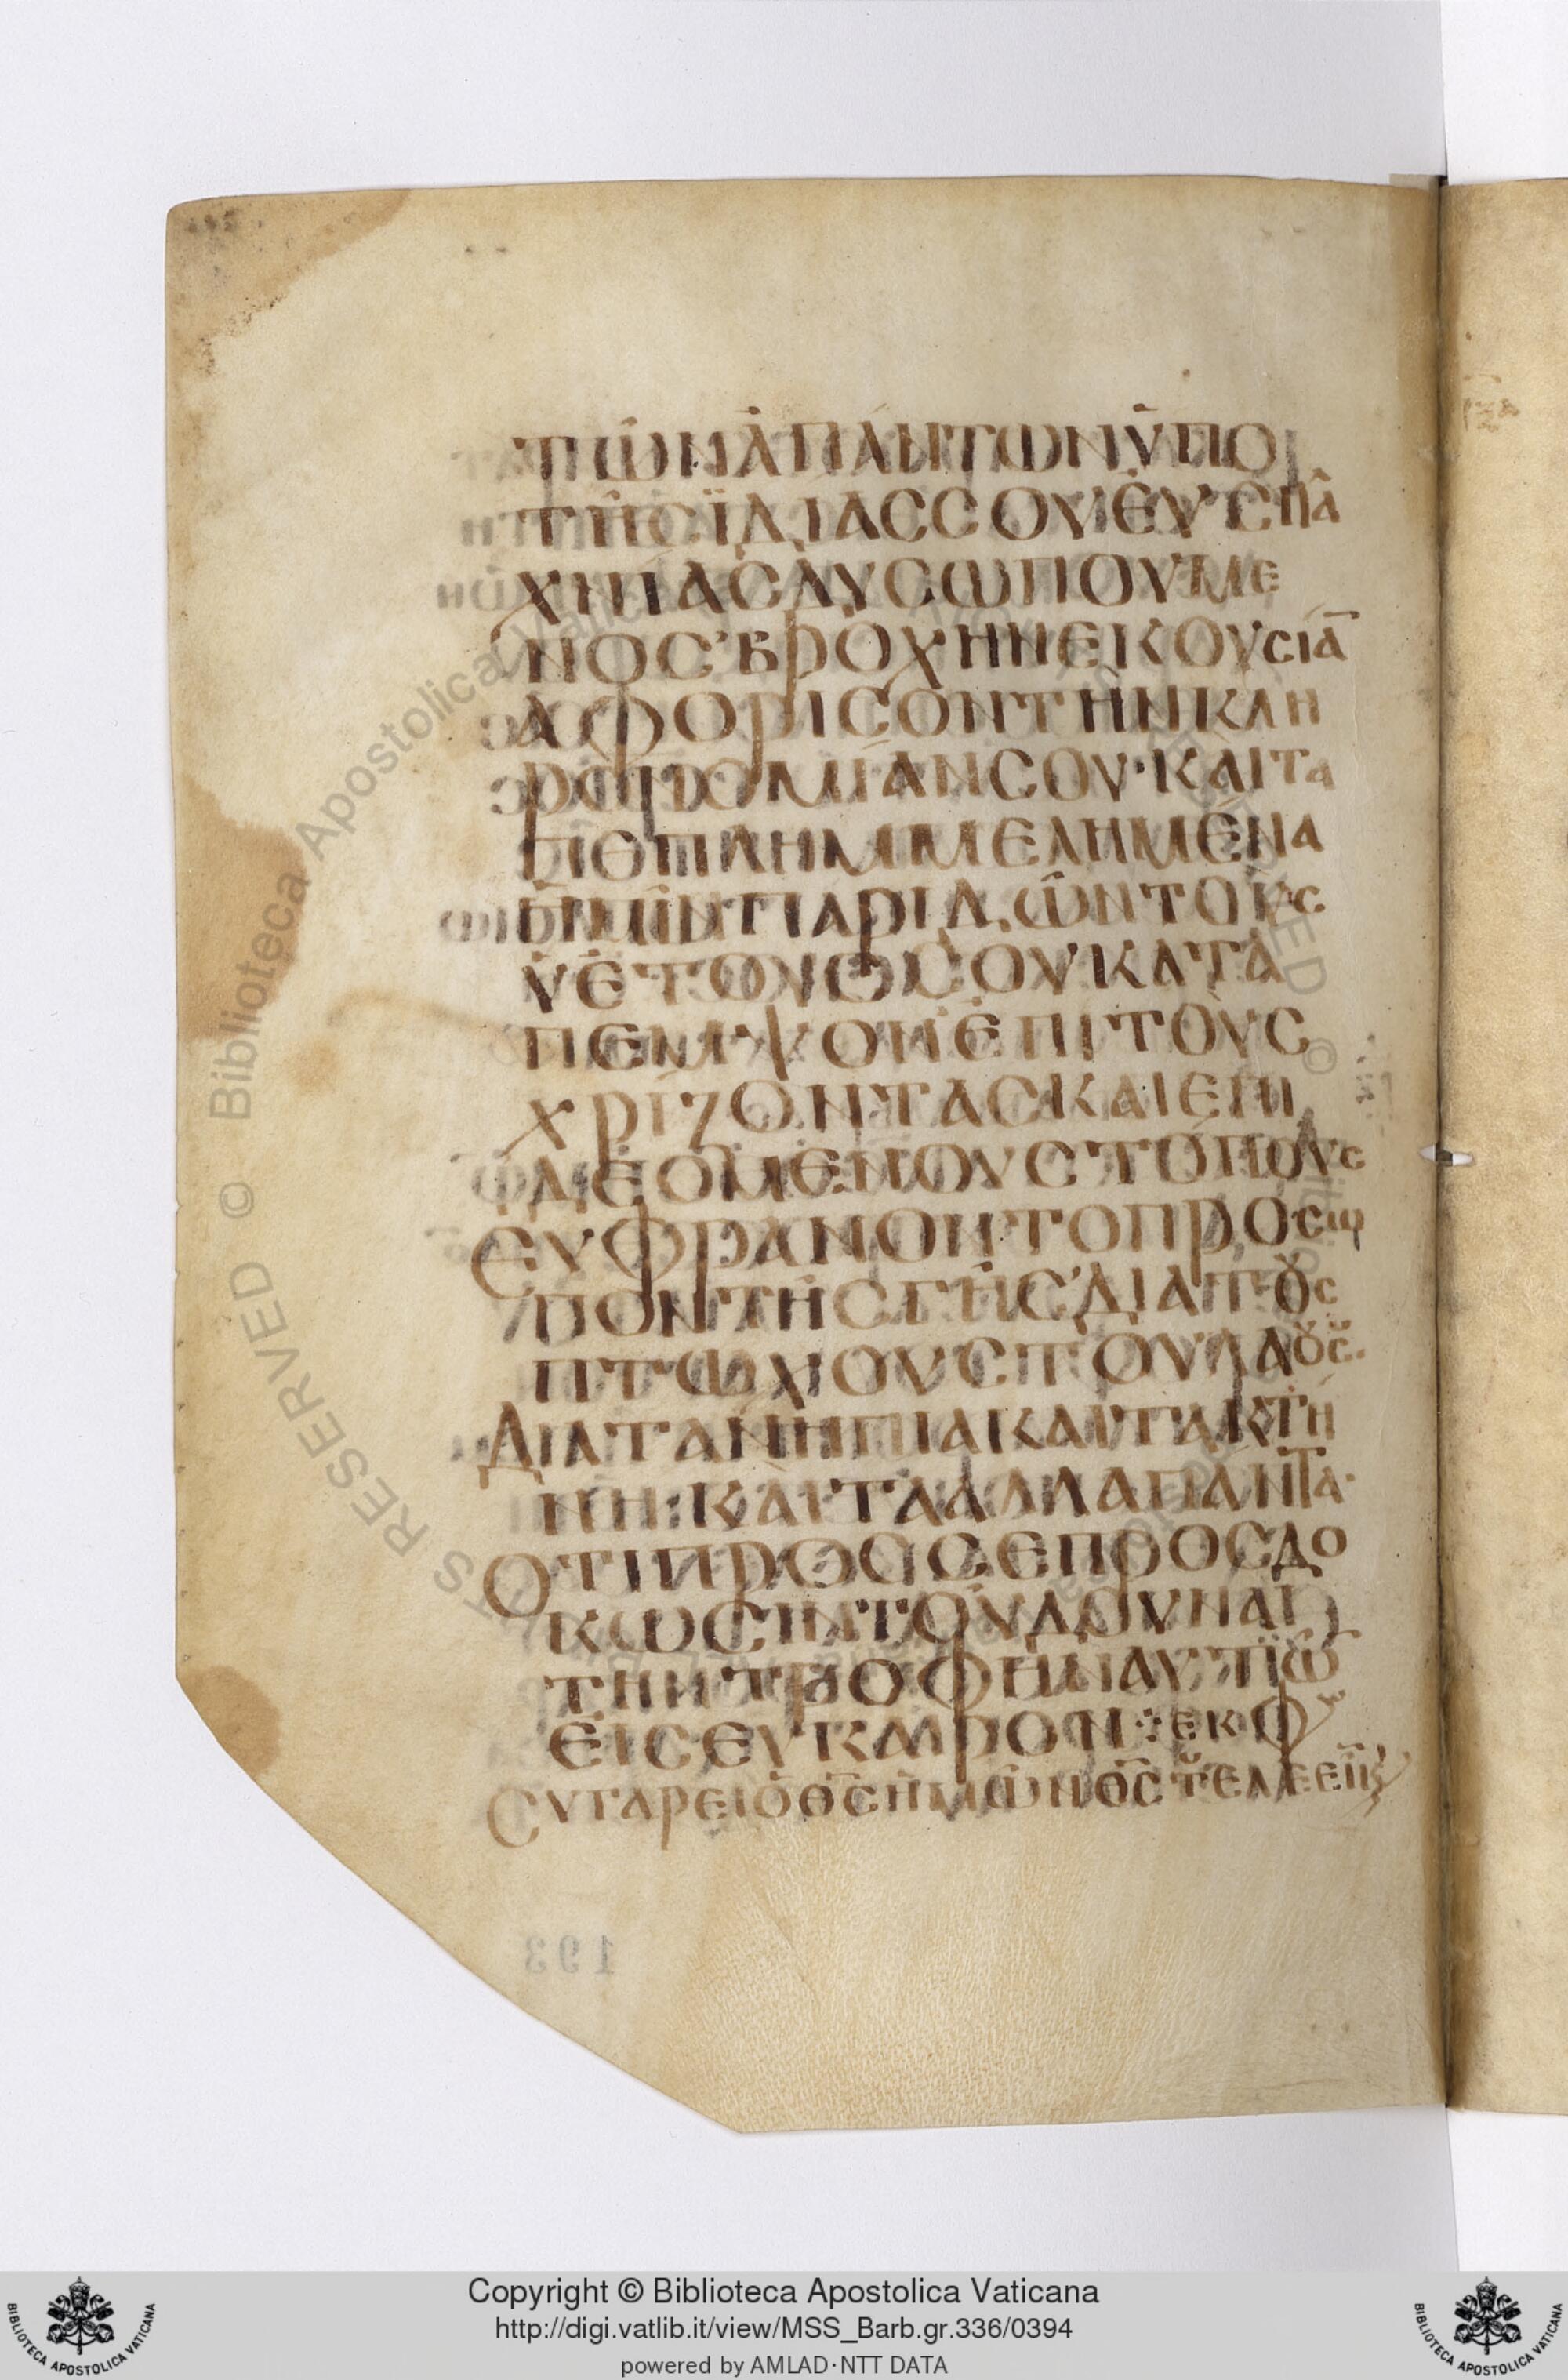 ΤῶΝ ἈΠΑΝΤΩΝ ὙΠΟ
ΤΗς ΪΔΙΑς ΣΟΥ ΕΥΣΠΛΑ
ΧΝΙΑΣ ΔΥΣΩΠΟΥΜΕ
ΝΟΣ· ΒΡΟΧΗΝ ΕΚΟΥΣΙΑ̅
ΑΦΟΡΙΣΟΝ ΤΗΝ ΚΛΗ
ΡΟΝΟΜΙΑΝ ΣΟΥ· ΚΑΙ ΤΑ
ΠΕΠΛΗΜΜΕΛΗΜΕΝΑ
ΗΜΙΝ ΠΑΡΙΔΩΝ ΤΟΥΣ
ΥΕΤΟΥΣ ΣΟΥ ΚΑΤΑ
ΠΕΜΨΟΝ ΕΠΙ ΤΟΥΣ
ΧΡΙΖΟΝΤΑΣ ΚΑΙ ΕΠΙ
ΔΕΟΜΕΝΟΥΣ ΤΟΠΟΥΣ
ΕΥΦΡΑΝΟΝ ΤΟ ΠΡΟΣΩ
ΠΟΝ ΤΗΣ ΓΗΣ· ΔΙΑ ΤȢΣ
ΠΤΩΧΟΥΣ ΤΟΥ ΛΑȢ Σ̆.
ΔΙΑ ΤΑ ΝΗΠΙΑ ΚΑΙ ΤΑ ΚΤΗ
ΝΗ· ΚΑΙ ΤΑ ΑΛΛΑ ΠΑΝΤΑ·
ΟΤΙ ΠΡΟΣ ΣΕ ΠΡΟΣΔΟ
ΚΩΣΙΝ ΤΟΥ ΔΟΥΝΑΙ
ΤΗΝ ΤΡΟΦΗΝ ΑΥΤΩ̅
ΕΙΣ ΕΥΚΑΙΡΟΝ :· ΕΚΦΩ
ΣΥ ΓΑΡ ΕΙ Ὁ Θ̅Σ̅ ΗΜΩΝ Θ̅Σ̅ ΤȢ ΕΛΕΕΙΝ
193
Copyright © Biblioteca Apostolica Vaticana
http://digi.vatlib.it/view/MSS_Barb.gr.336/0394
powered by AMLAD·NTT DATA